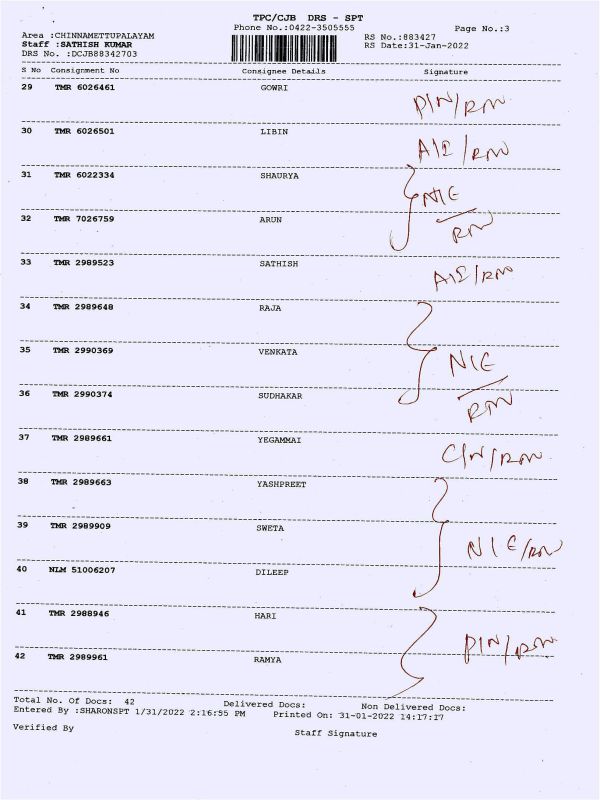 TPC/CJB DRS - SPT
Phone No.:0422-3505555 Page No.:3
Area :CHINNAMETTUPALAYAM RS No.:883427
Staff :SATHISH KUMAR RS Date:31-Jan-2022
DRS No. :DCJB88342703
S No Consignment No Consignee Details Signature
29 TMR 6026461 GOWRI
PIN/RW
30 TMR 6026501 LIBIN
31 TMR 6022334 SHAURYA
32 TMR 7026759 ARUN
33 TMR 2989523 SATHISH
34 TMR 2989648 RAJA
35 TMR 2990369 VENKATA
36 TMR 2990374 SUDHAKAR
37 TMR 2989661 YEGAMMAI
38 TMR 2989663 YASHPREET
39 TMR 2989909 SWETA
40 NLM 51006207 DILEEP
41 TMR 2988946 HARI
PIN/RW
42 TMR 2989961 RAMYA
Total No. Of Docs: 42 Delivered Docs: Non Delivered Docs:
Entered By :SHARONSPT 1/31/2022 2:16:55 PM Printed On: 31-01-2022 14:17:17
Verified By Staff Signature